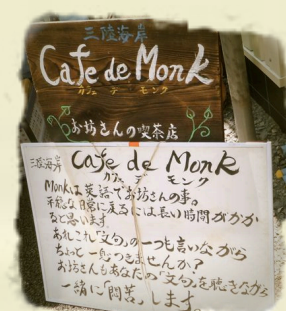 三陸海岸
Cafe de Monk
カフェ デ モンク
お坊さんの喫茶店
三陸海岸 Cafe de Monk
カフェ デ モンク
Monkは英語でお坊さんの事。
平穏な日常に戻るには長い時間がかか
ると思います。
あれこれ「文句」の一つも言いながら
ちょっと一息つきませんか？
お坊さんもあなたの「文句」を聴きながら
一緒に「悶苦」します。